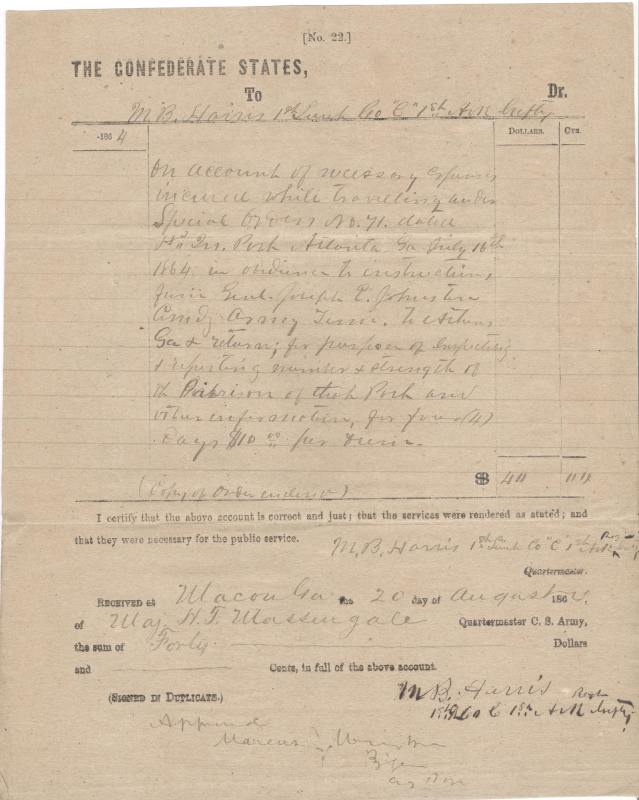 [No. 22.]
THE CONFEDERATE STATES,
To Dr.
M. B. Harris 1st Lieut Co "C" 1st Ark Infty
DOLLARS. CTS.
186 4
On account of necessary expenses
incured while travelling under
Special Orders No. 71. dated
Hd Qrs. Post Atlanta Ga July 16th
1864. in obedience to instructions
from Genl. Joseph E. Johnston
Comdg Army Tenn. to
Ga & return; for purpose of inspecting
& reporting number & strength of
the Garrison of that Post and
other information, for four (4)
Days $10 00 per diem.
(Copy of Order endorsed)
$ 40 00
I certify that the above account is correct and just; that the services were rendered as stated; and
that they were necessary for the public service.
M. B. Harris 1st Lieut Co "C" 1st Ark
Quartermaster.
RECEIVED at Macon Ga the 20 day of August 186 4.
of Maj. H. F. Massengale Quartermaster C. S. Army,
the sum of Forty Dollars
and Cents, in full of the above account.
(SIGNED IN DUPLICATE.)
M B. Harris
Co C 1st Ark Infty
Approved
Marcus J. Wright